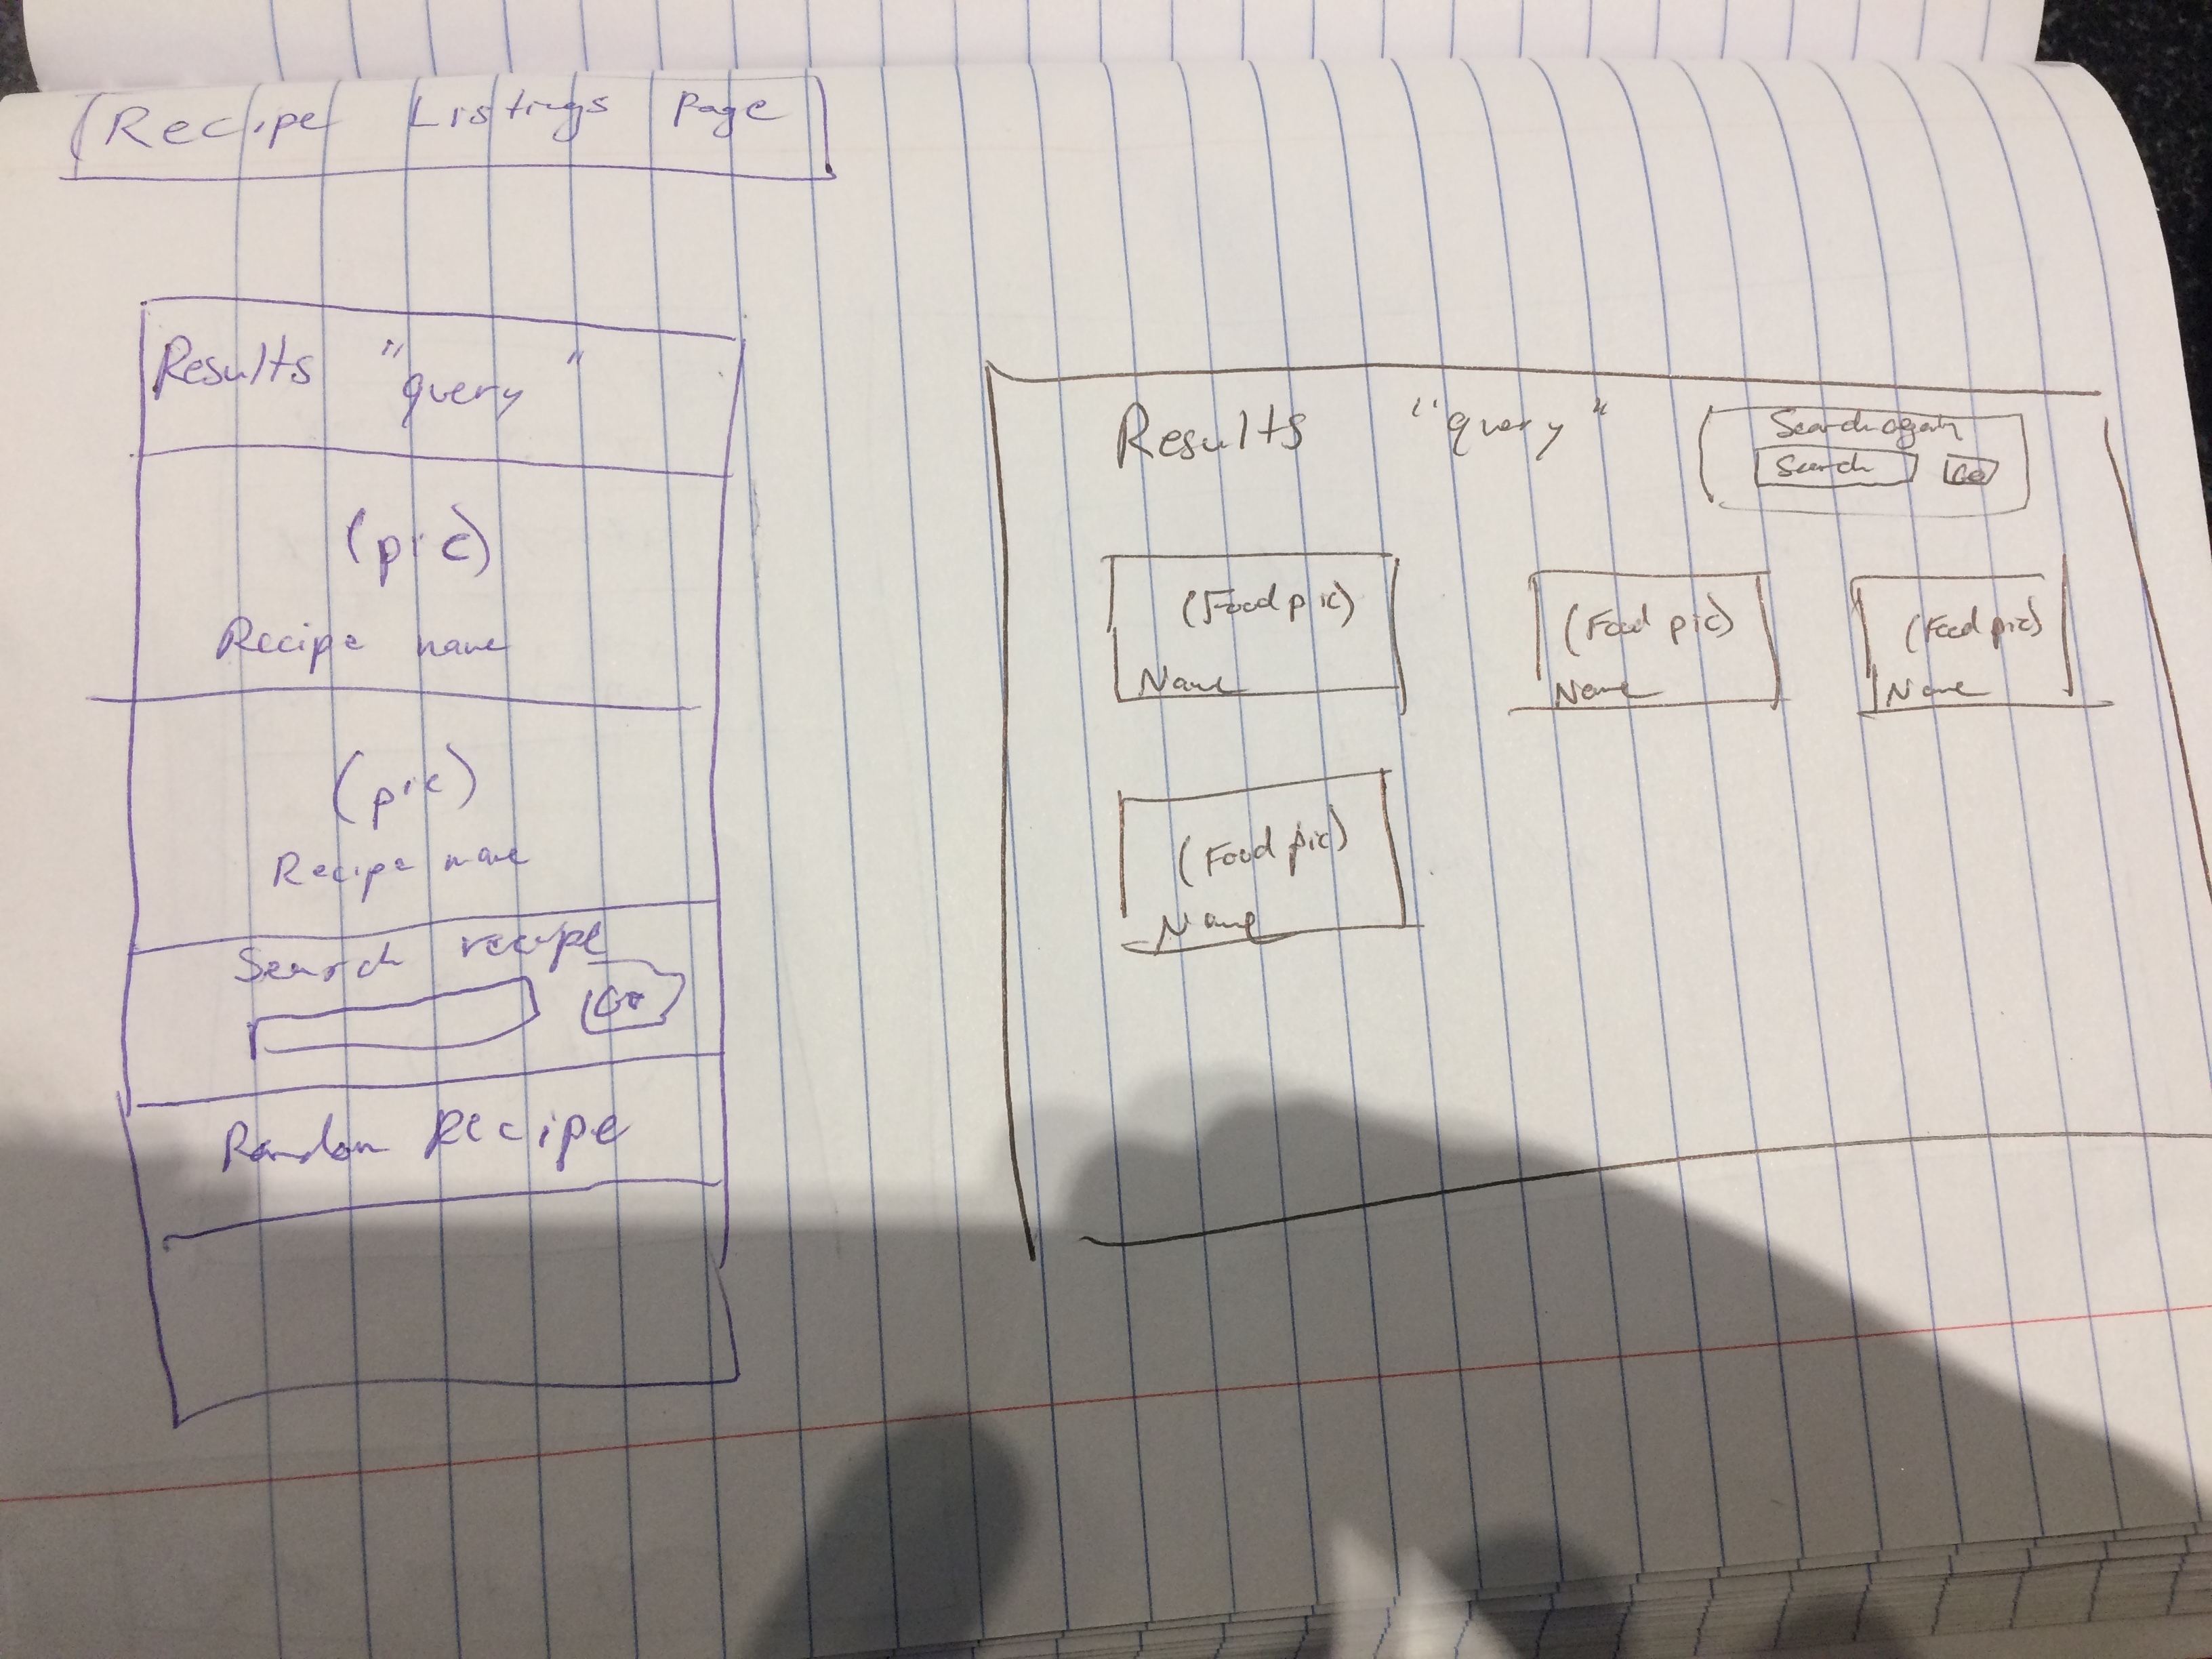 Recipe Listings Page
Results "query"
(pic)
Recipe name
(pic)
Recipe name
Search recipe
Go
Random Recipe
Results "query"
Search again
Search Go
(Food pic) (Food pic) (Food pic)
Name Name Name
(Food pic)
Name